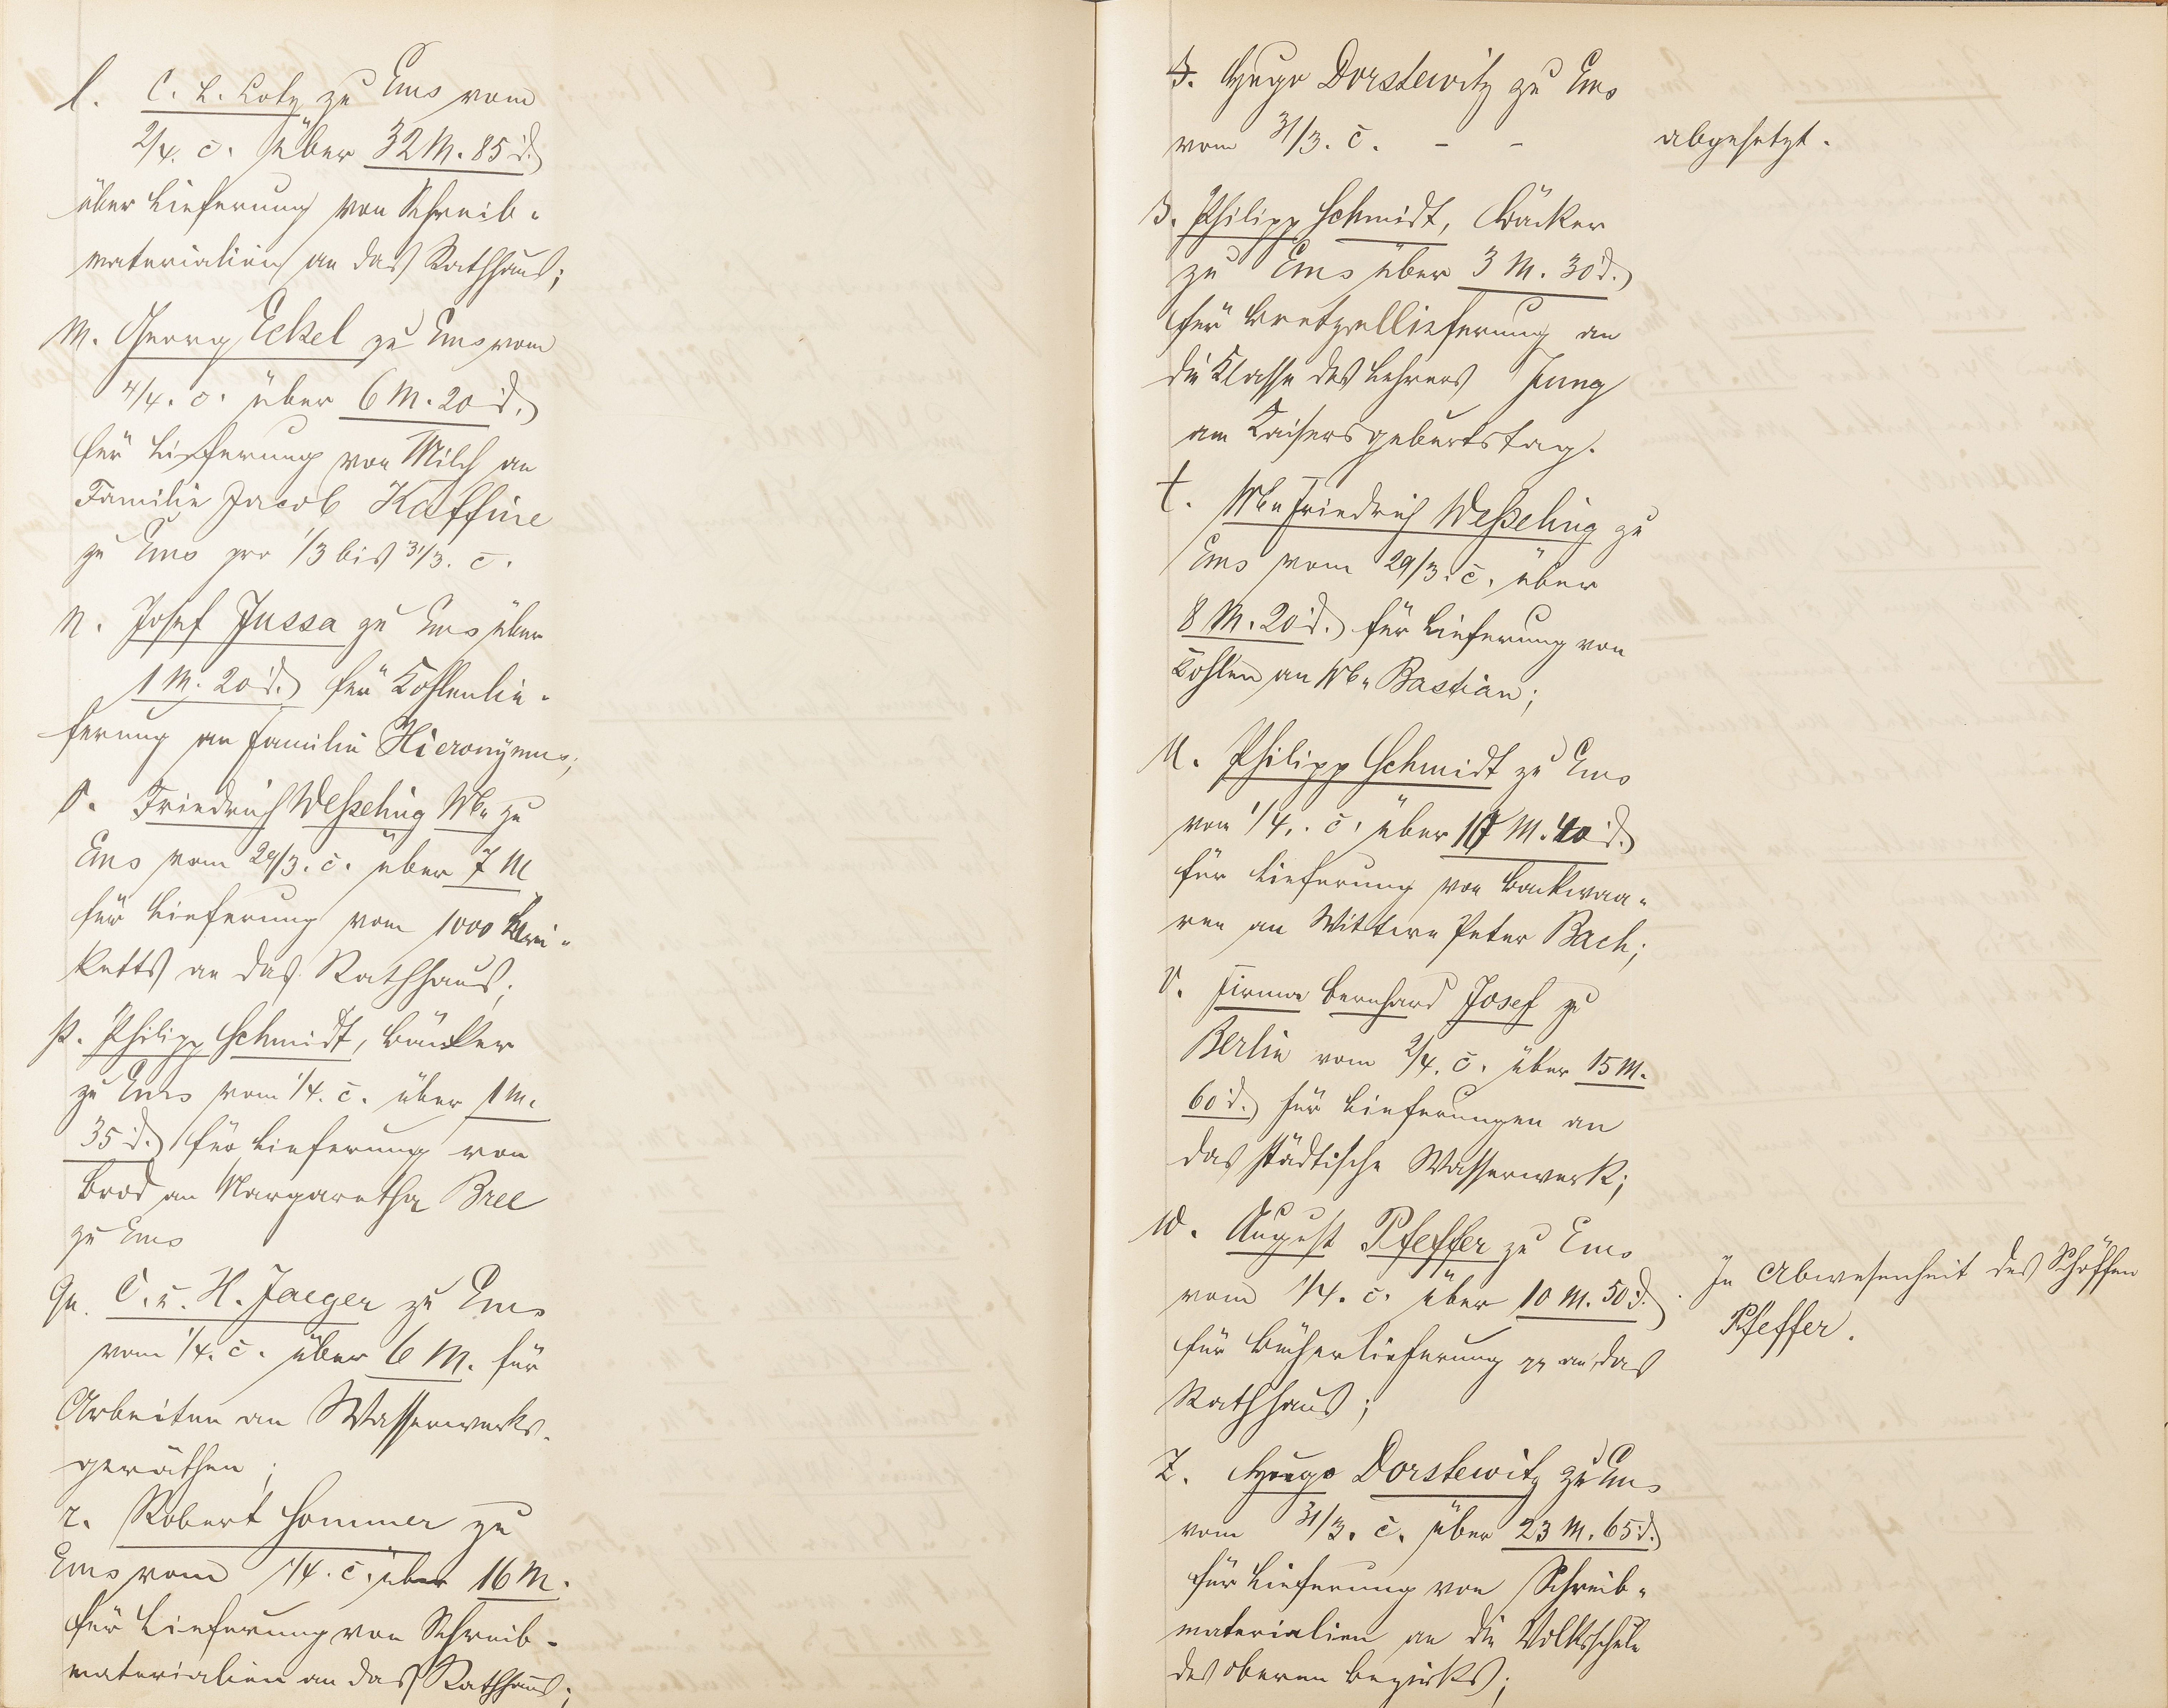 l. C. L. Lotz zu Ems vom
2/4. c. über 32 M. 85 d.
über Lieferung von Schreib-
materialien an das Rathhaus;
m. Georg Eckel zu Ems vom
4/4. c. über 6 M. 20 d.
für Lieferung von Milch an
Familie Jacob Kaffine
zu Ems pro 1/3 bis 31/3. c.
n. Josef Jussa zu Ems über
1 M. 20 d. für Kohlenlie-
ferung an Familie Hieronymus;
o. Friedrich Weßeling Ww. zu
Ems vom 29/3. c. über 7 M
für Lieferung vom 1000 Bri-
ketts an das Rathhaus;
p. Philipp Schmidt, Bäcker
zu Ems vom 1/4. c. über 1 M.
35 d. für Lieferung von
Brod an Margaretha Bree
zu Ems
qu. C. u. H. Jaeger zu Ems
vom 1/4. c. über 6 M. für
Arbeiten an Wasserwerks-
geräthen;
r. Robert Sommer zu
Ems vom 1/4. c. über 16 M.
für Lieferung von Schreib-
materialien an das Rathhaus;
s. Hugo Dorstewitz zu Ems
vom 31/3. c. - -
abgesetzt.
s. Philipp Schmidt, Bäcker
zu Ems über 3 M. 30 d.
für Bretzellieferung an
die Klasse des Lehrers Jung
am Kaisersgeburtstag.
t. Ww. Friedrich Weßeling zu
Ems vom 29/3. c. über
8 M. 20 d. für Lieferung von
Kohlen an Ww. Bastian;
u. Philipp Schmidt zu Ems
vom 1/4. c. über 17 M. 40 d.
für Lieferung von Backwaa-
ren an Wittwe Peter Bach;
v. Firma Bernhard Josef zu
Berlin vom 2/4. c. über 15 M.
60 d. für Lieferungen an
das städtische Wasserwerk;
w. August Pfeffer zu Ems
vom 1/4. c. über 10 M. 50 d.
für Bücherlieferung pp an das
Rathhaus;
In Abwesenheit des Schöffen
Pfeffer.
z. Hugo Dorstewitz zu Ems
vom 31/3. c. über 23 M. 65 d.
für Lieferung von Schreib-
materialien an die Volksschule
des oberen Bezirks;